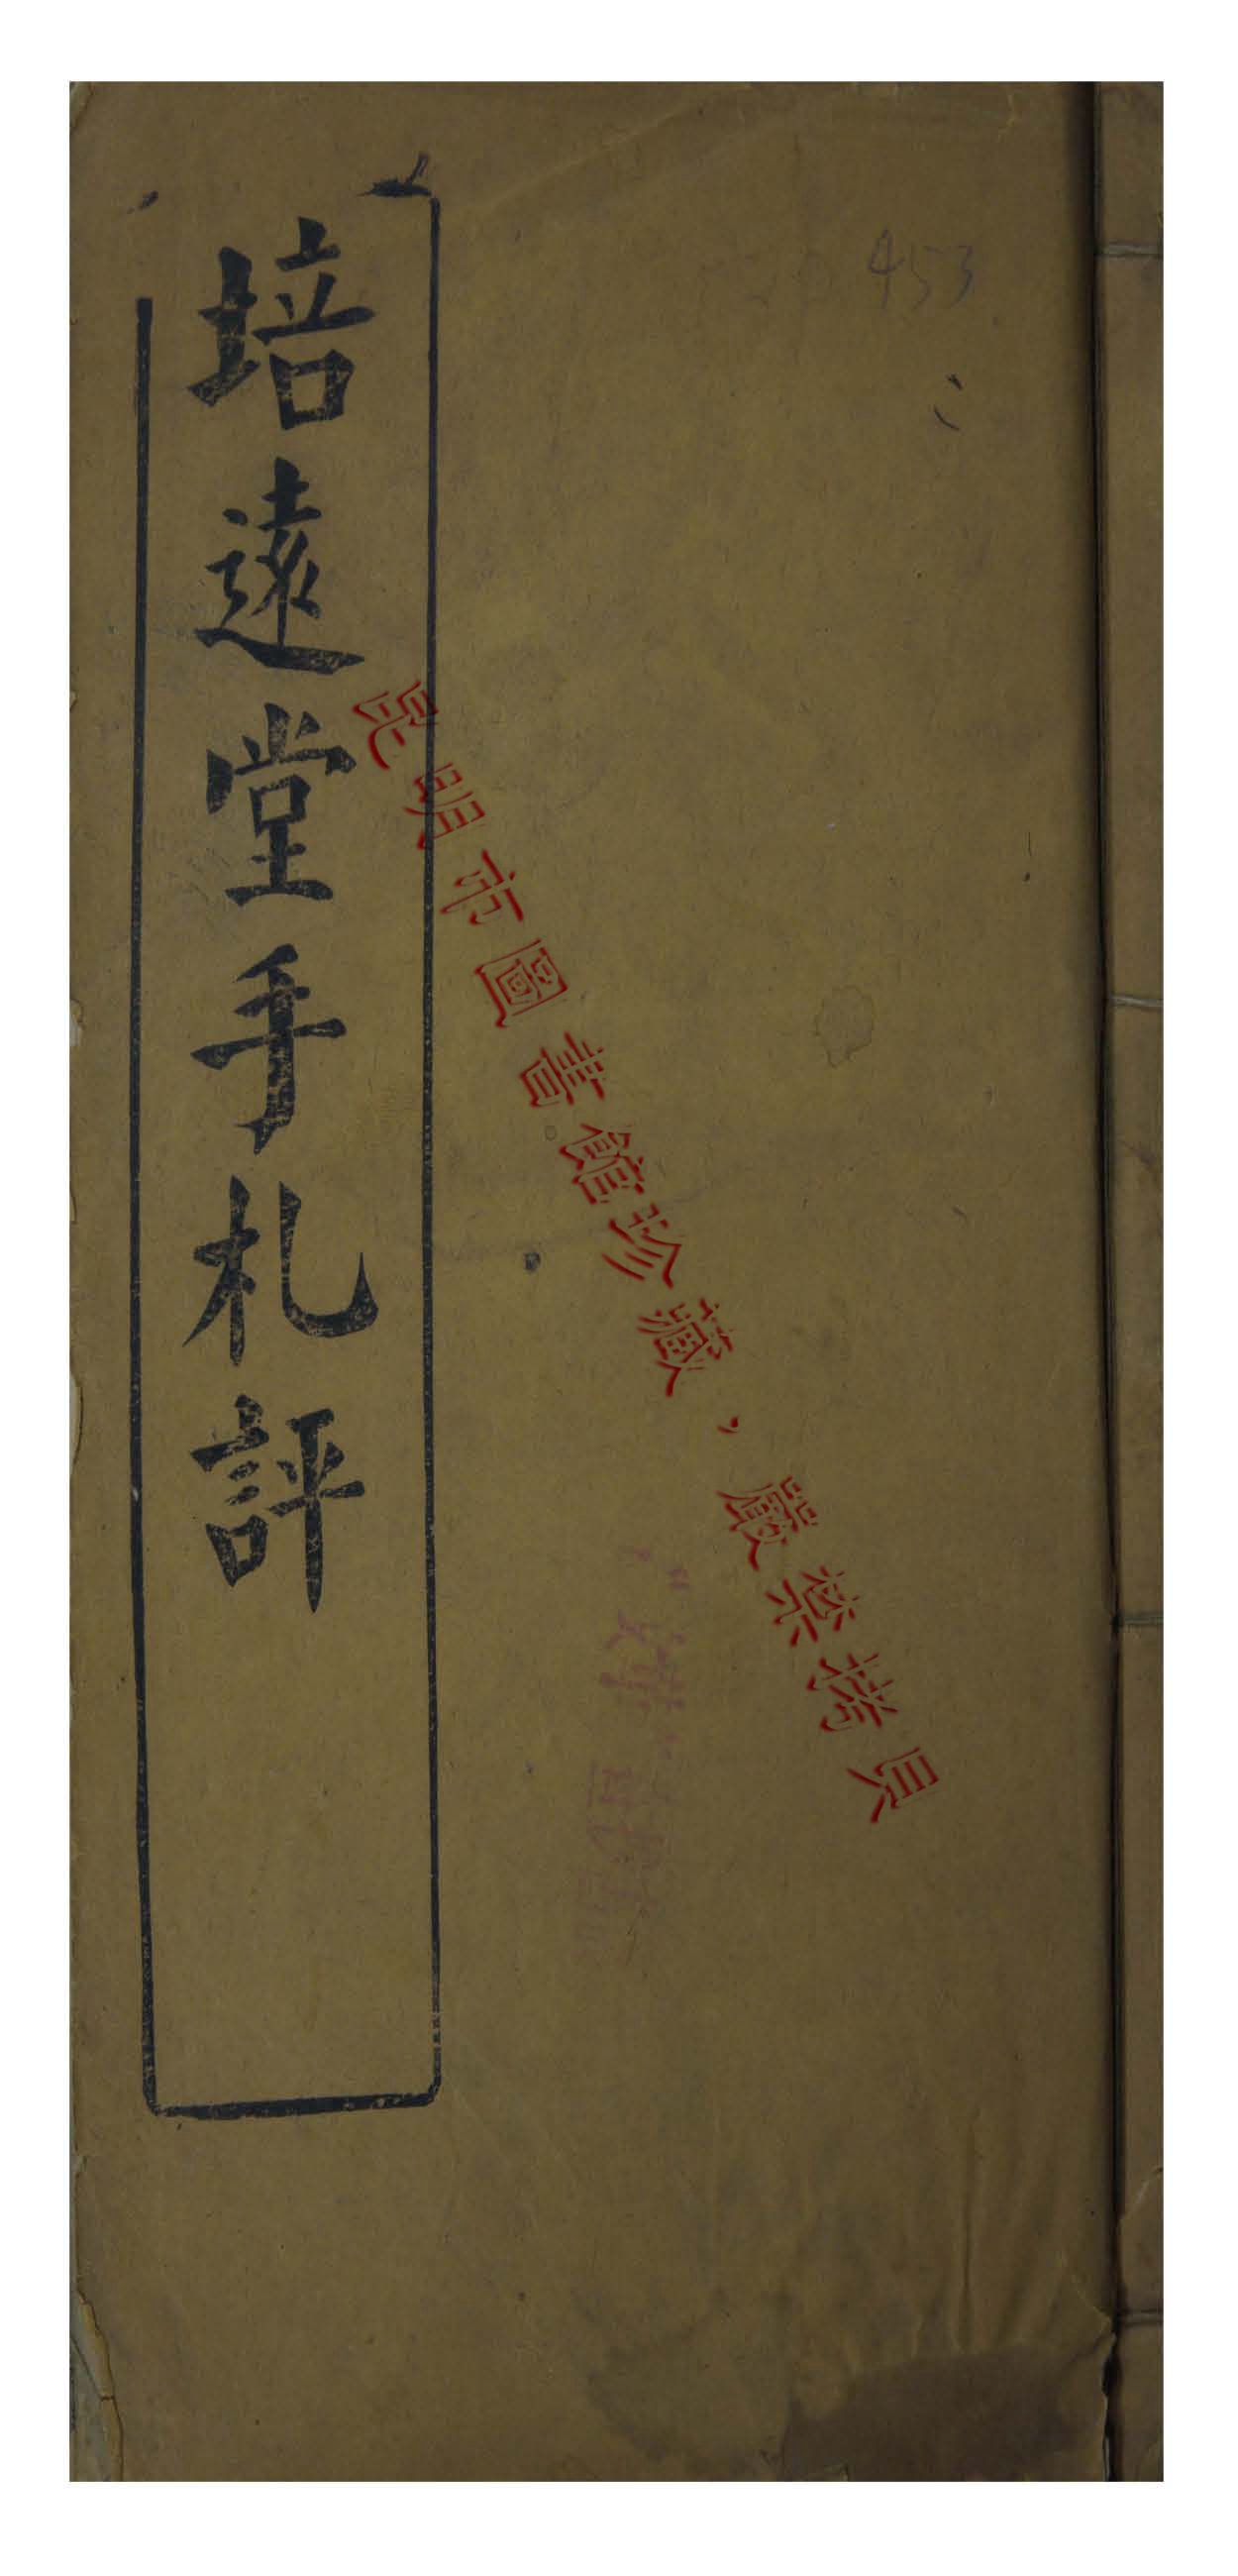 453
培遠堂手札評
昆明市圖書館珍藏，嚴禁拷貝